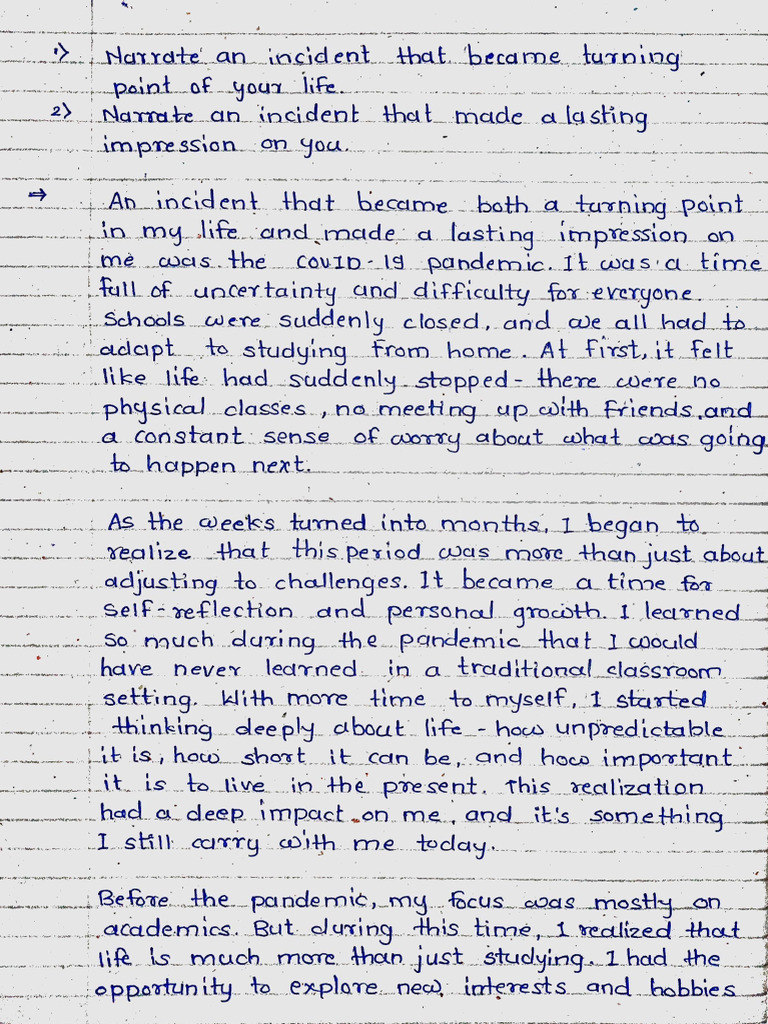 1) Narrate an incident that became turning
point of your life.
2) Narrate an incident that made a lasting
impression on you.
⇒ An incident that became both a turning point
in my life and made a lasting impression on
me was the COVID-19 pandemic. It was a time
full of uncertainty and difficulty for everyone.
Schools were suddenly closed, and we all had to
adapt to studying from home. At first, it felt
like life had suddenly stopped - there were no
physical classes, no meeting up with friends, and
a constant sense of worry about what was going
to happen next.
As the weeks turned into months, I began to
realize that this period was more than just about
adjusting to challenges. It became a time for
self-reflection and personal growth. I learned
so much during the pandemic that I would
have never learned in a traditional classroom
setting. With more time to myself, I started
thinking deeply about life - how unpredictable
it is, how short it can be, and how important
it is to live in the present. This realization
had a deep impact on me, and it's something
I still carry with me today.
Before the pandemic, my focus was mostly on
academics. But during this time, I realized that
life is much more than just studying. I had the
opportunity to explore new interests and hobbies